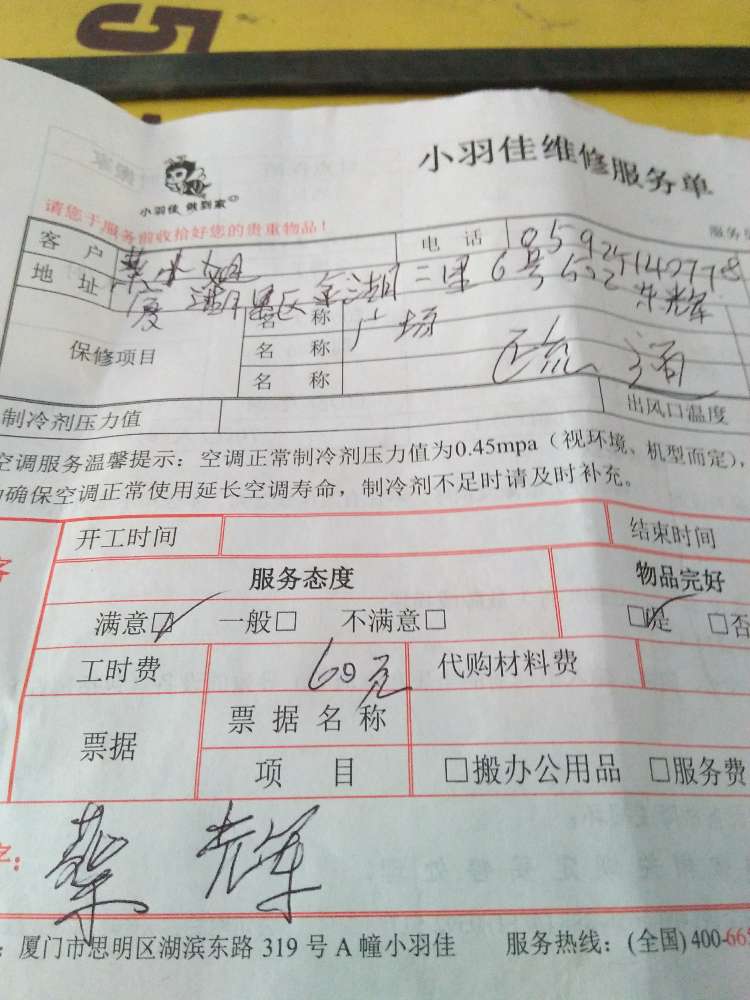 5
小羽佳维修服务单
小羽佳 做到家
请您于服务前收拾好您的贵重物品！
服务
客 户
电 话
地 址
保修项目
名 称 广场
名 称 疏通
名 称
制冷剂压力值
出风口温度
空调服务温馨提示：空调正常制冷剂压力值为0.45mpa（视环境、机型而定），
确保空调正常使用延长空调寿命，制冷剂不足时请及时补充。
开工时间
结束时间
服务态度
物品完好
满意□ 一般□ 不满意□
□是 □否
工时费 60元 代购材料费
票据
票据名称
项 目 □搬办公用品 □服务费
字：
厦门市思明区湖滨东路 319 号 A 幢小羽佳 服务热线：(全国) 400-665